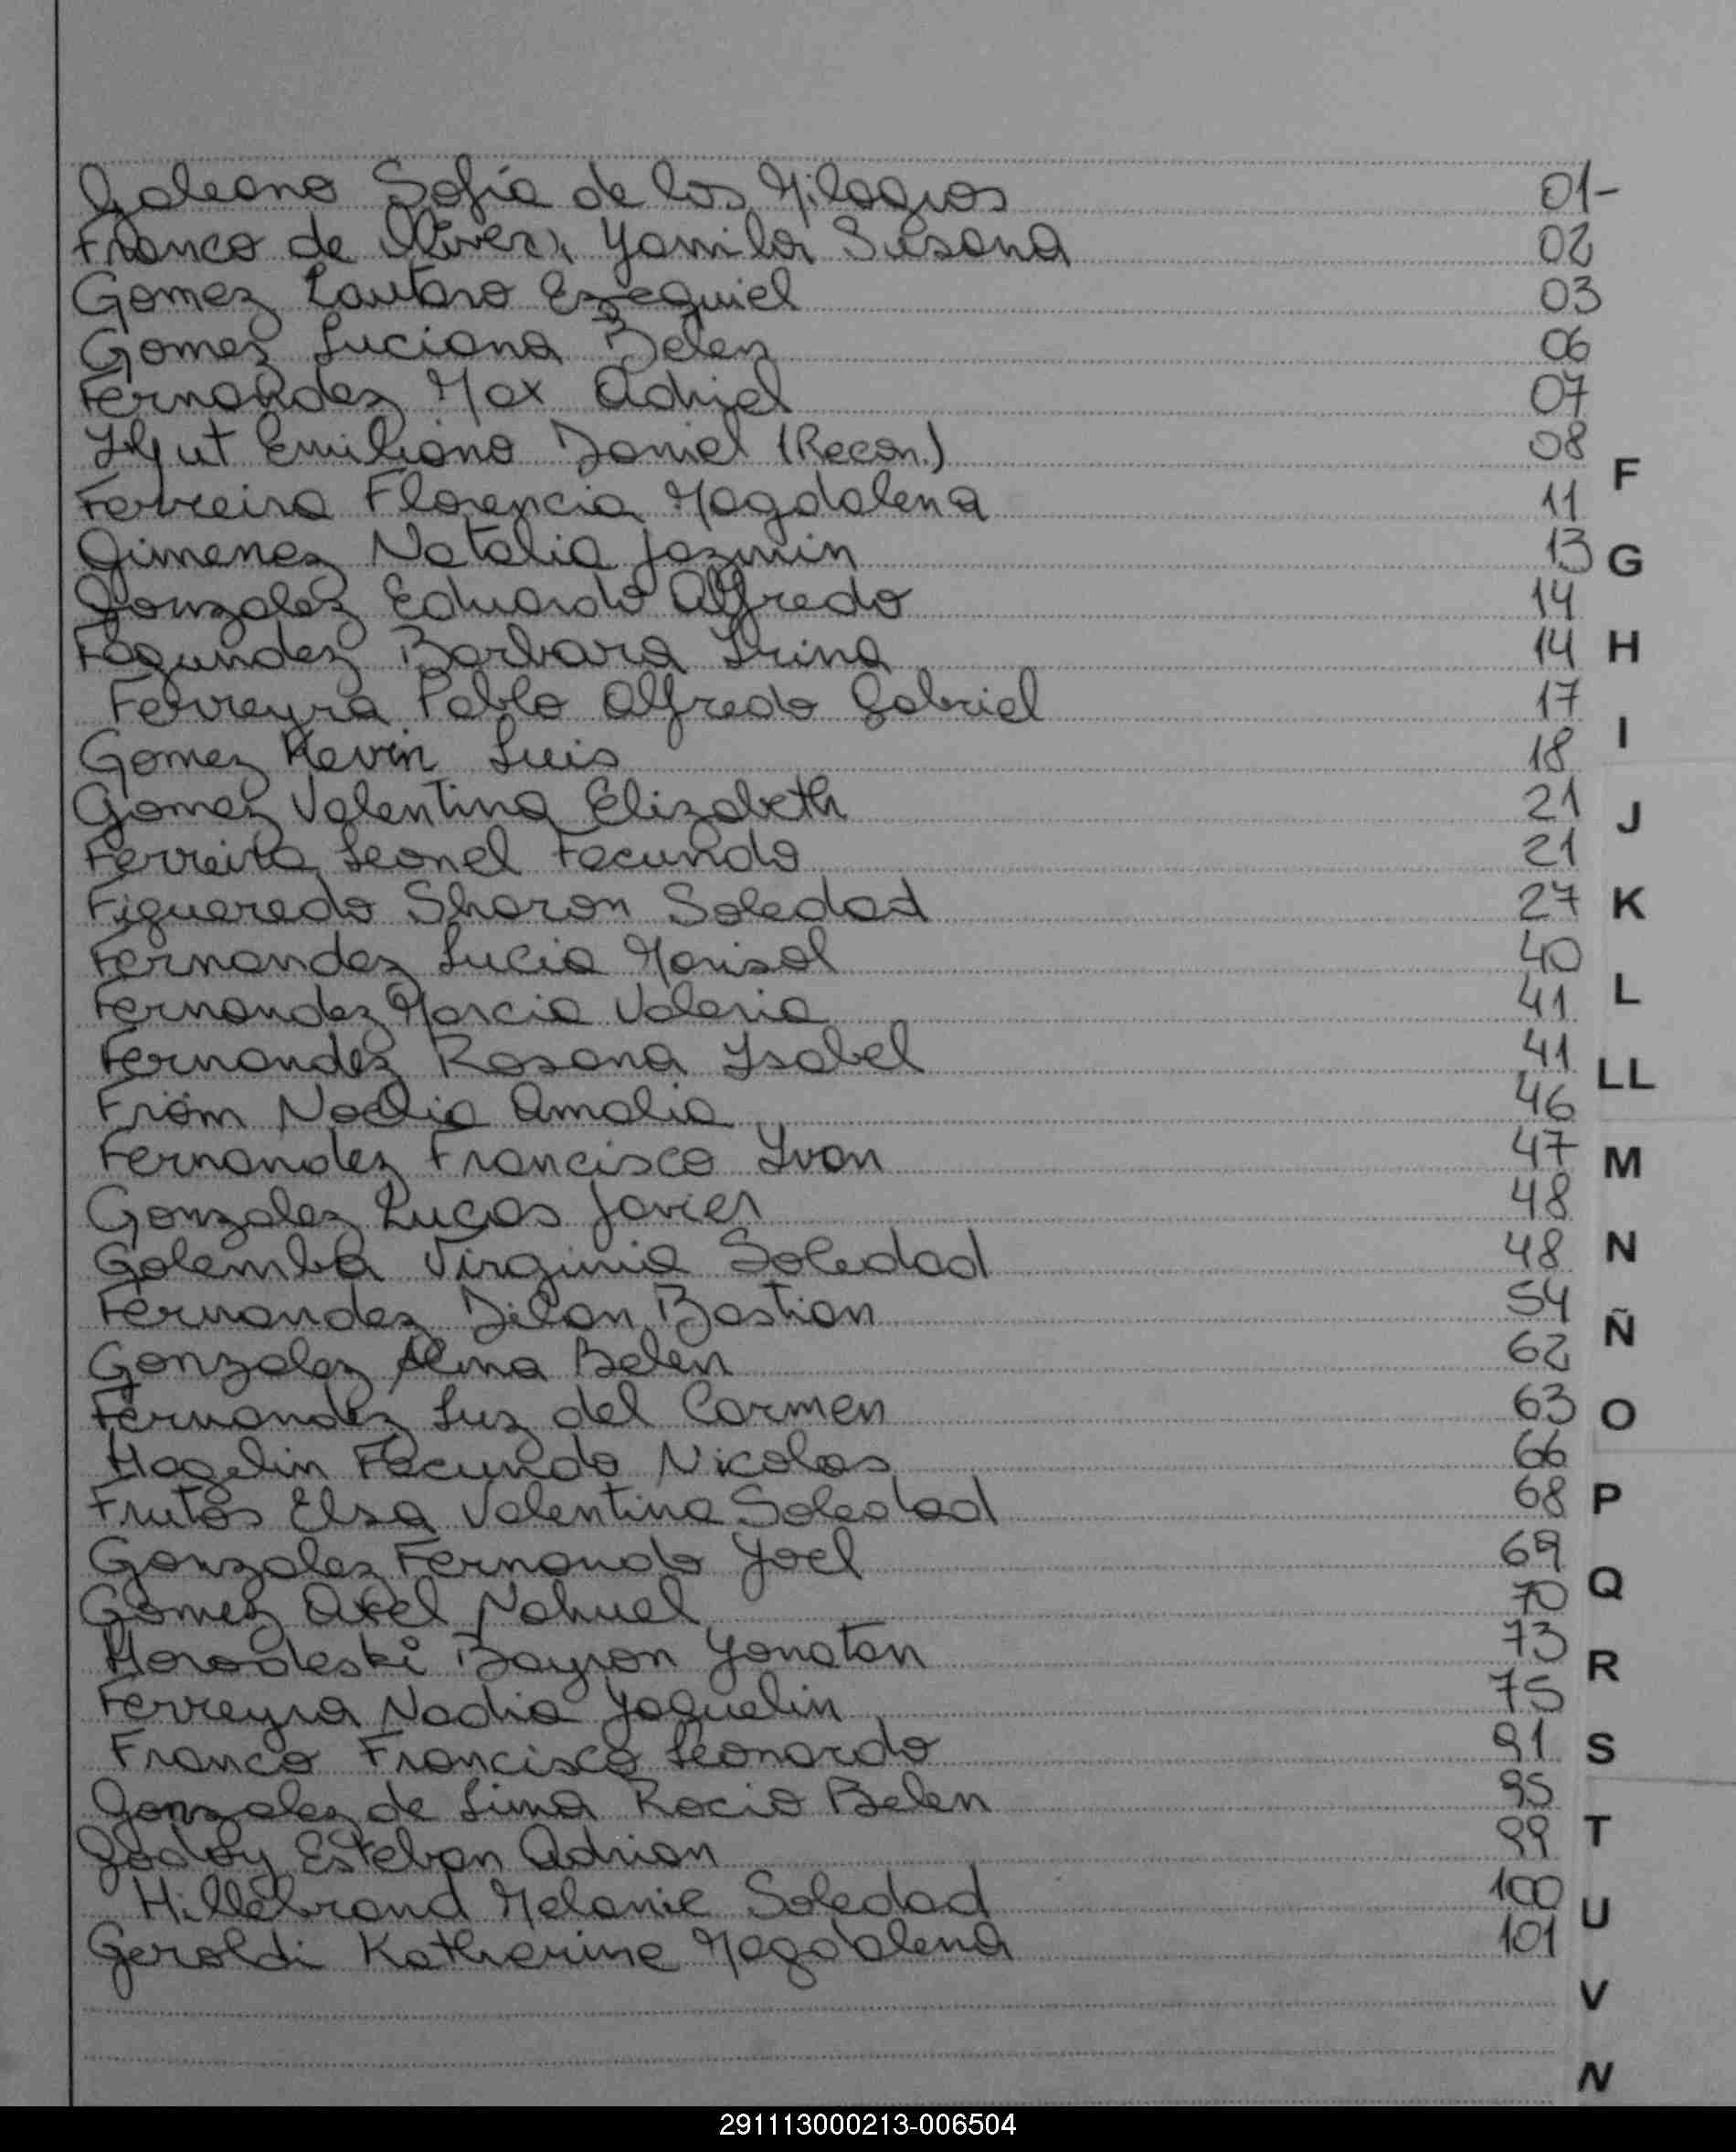 Galeano Sofía de los Milagros 01-
Franco de Olivera Yamila Susana 02
Gomez Lautaro Ezequiel 03
Gomez Luciana Belen 06
Fernandez Max Adriel 07
Emiliano Daniel (Recon.) 08
Ferreira Florencia Magdalena 11
Gimenez Natalia Jazmin 13
Gonzalez Eduardo Alfredo 14
Fagundez Barbara Irina 14
Ferreyra Pablo Alfredo Gabriel 17
Gomez Kevin Luis 18
Gomez Valentina Elizabeth 21
Ferreira Leonel Facundo 21
Figueredo Sharon Soledad 27
Fernandez Lucia Marisol 40
Fernandez Marcia Valeria 41
Fernandez Rosana Isabel 41
From Noelia Amalia 46
Fernandez Francisco Ivan 47
Gonzalez Lucas Javier 48
Golemba Virginia Soledad 48
Fernandez Dilan Bastian 54
Gonzalez Alma Belen 62
Fernandez Luz del Carmen 63
Hagelin Facundo Nicolas 66
Frutos Elsa Valentina Soledad 68
Gonzalez Fernando Joel 69
Gomez Axel Nahuel 70
Horodeski Bayron Yonatan 73
Ferreyra Nadia Yaquelin 75
Franco Francisco Leonardo 91
Gonzalez de Lima Rocio Belen 95
Godoy Esteban Adrian 99
Hillebrand Melanie Soledad 100
Geroldi Katherine Magdalena 101
F
G
H
I
J
K
L
LL
M
N
Ñ
O
P
Q
R
S
T
U
V
291113000213-006504